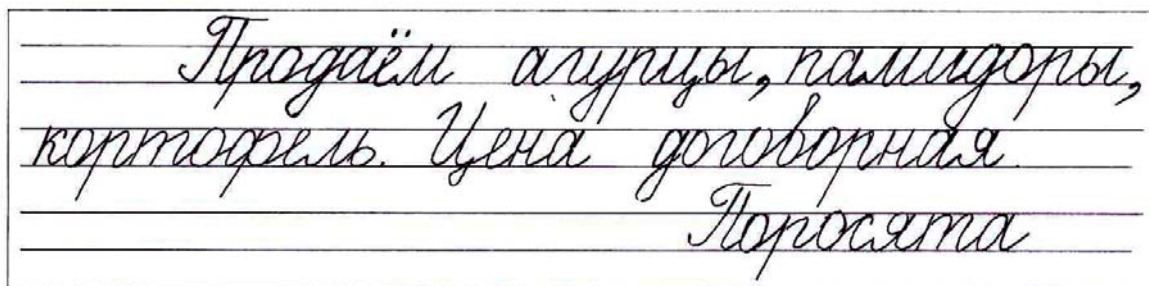 Продаём агурцы, памидоры,
кортофель. Цена договорная.
Поросята